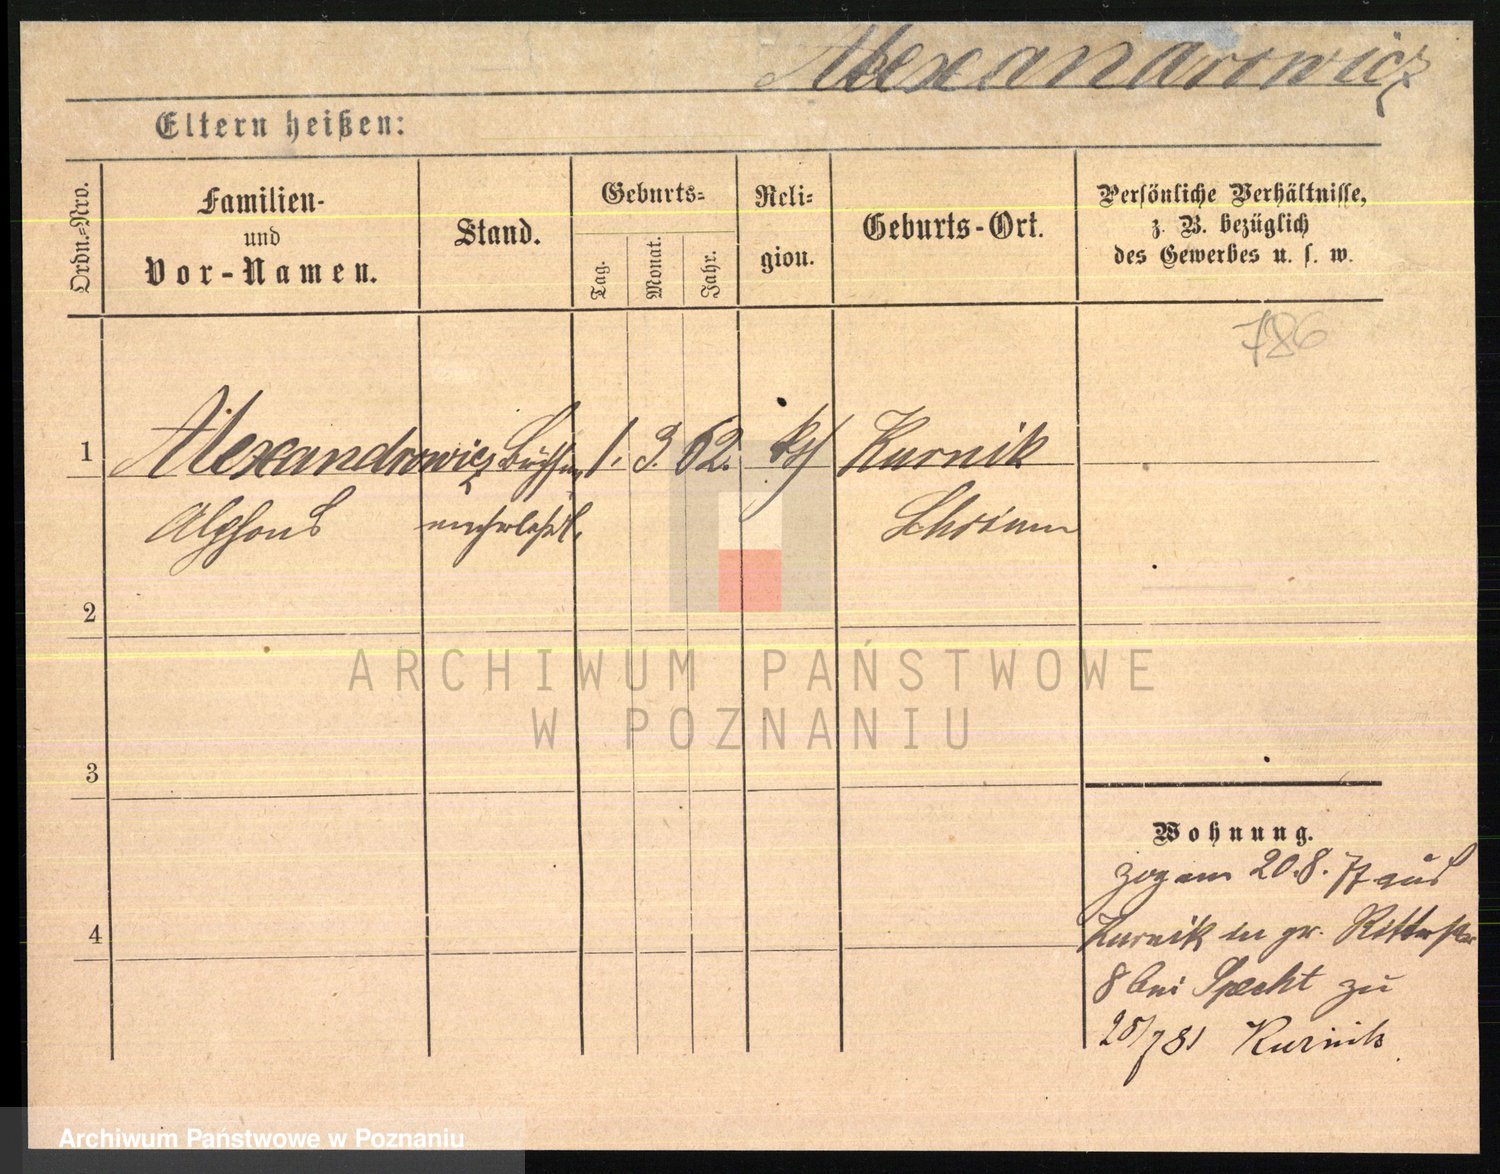 Alexandrowicz
Eltern heißen:
Ordn.-Nro.
Familien-
und
Vor-Namen.
Stand.
Geburts-
Tag.
Monat.
Jahr.
Reli-
gion.
Geburts-Ort.
Persönliche Verhältnisse,
z. B. bezüglich
des Gewerbes u. s. w.
786
1 Alexandrowicz 1. 3. 62. Kurnik
Alphons Schrimm
2
3
4
Wohnung.
zog am 20.8.77 aus
Kurnik in gr. Ritterstr
8 bei Specht zu
Kurnik
ARCHIWUM PAŃSTWOWE
W POZNANIU
Archiwum Państwowe w Poznaniu